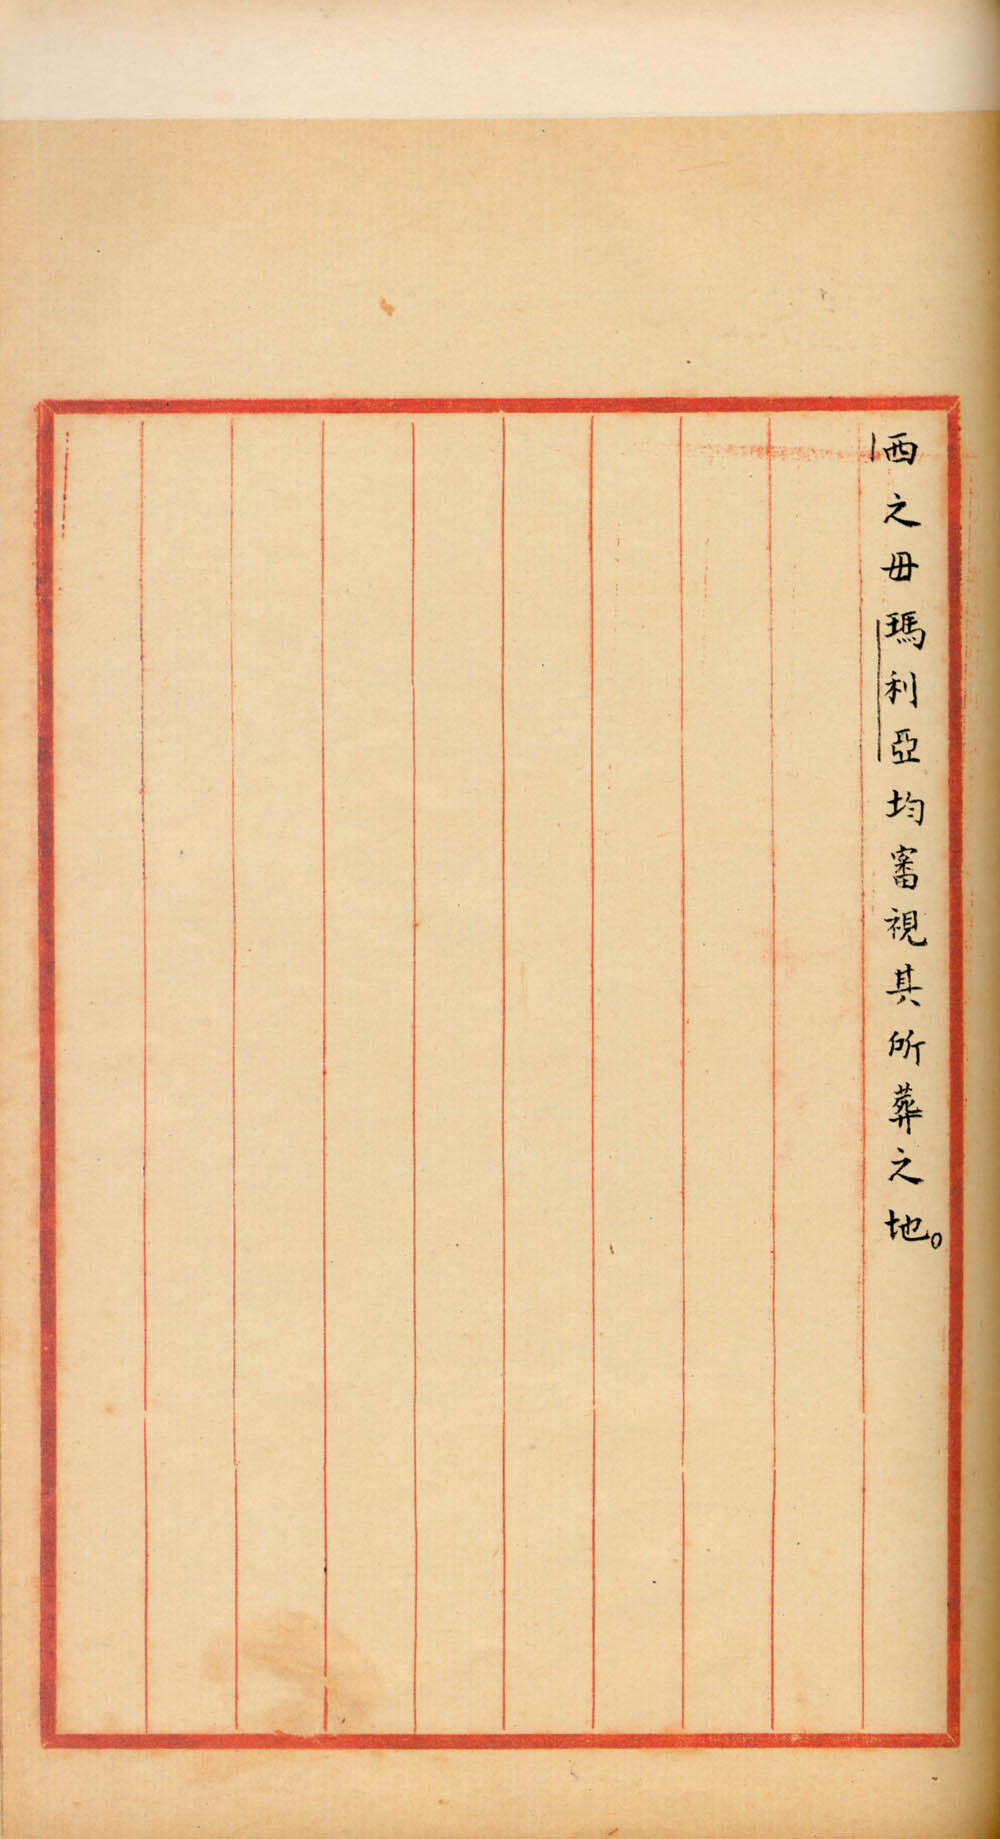 西之母瑪利亞均審視其所葬之地。